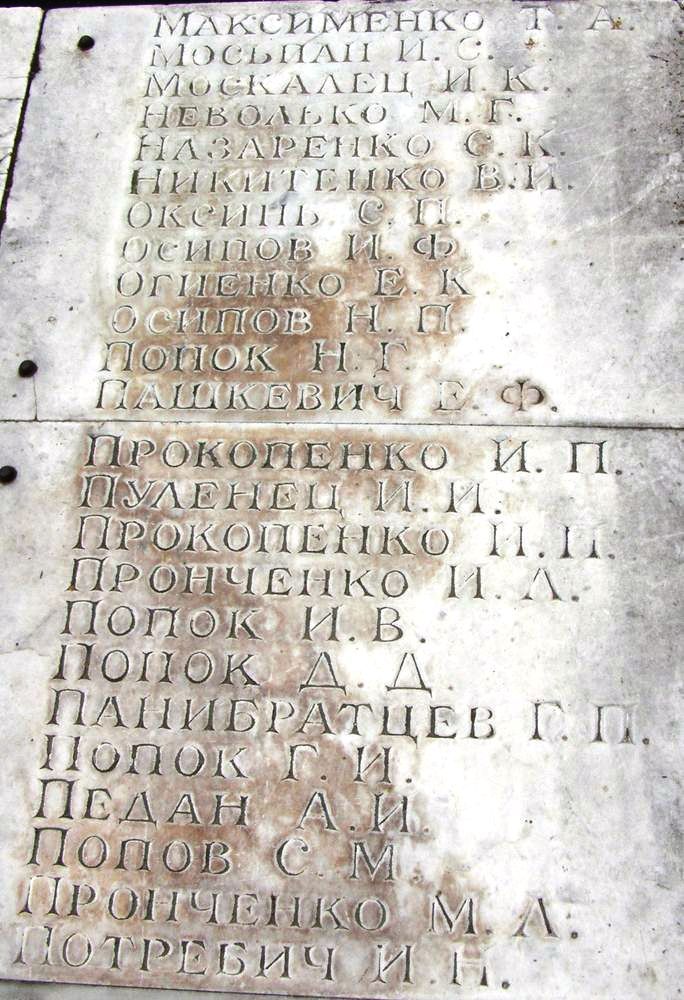 Максименко Т. А.
Мосьпан И. С.
Москалец И. К.
Неволько М. Г.
Назаренко С. К.
Никитенко В. И.
Оксинь С. П.
Осипов И. Ф.
Огиенко Е. К.
Осипов Н. П.
Попок Н. Г.
Пашкевич Е. Ф.
Прокопенко И. П.
Пуленец И. И.
Прокопенко И. П.
Пронченко И. Л.
Попок И. В.
Попок Д. Д.
Панибратцев Г. П.
Попок Г. И.
Педан А. И.
Попов С. М.
Пронченко М. Л.
Потребич И. Н.